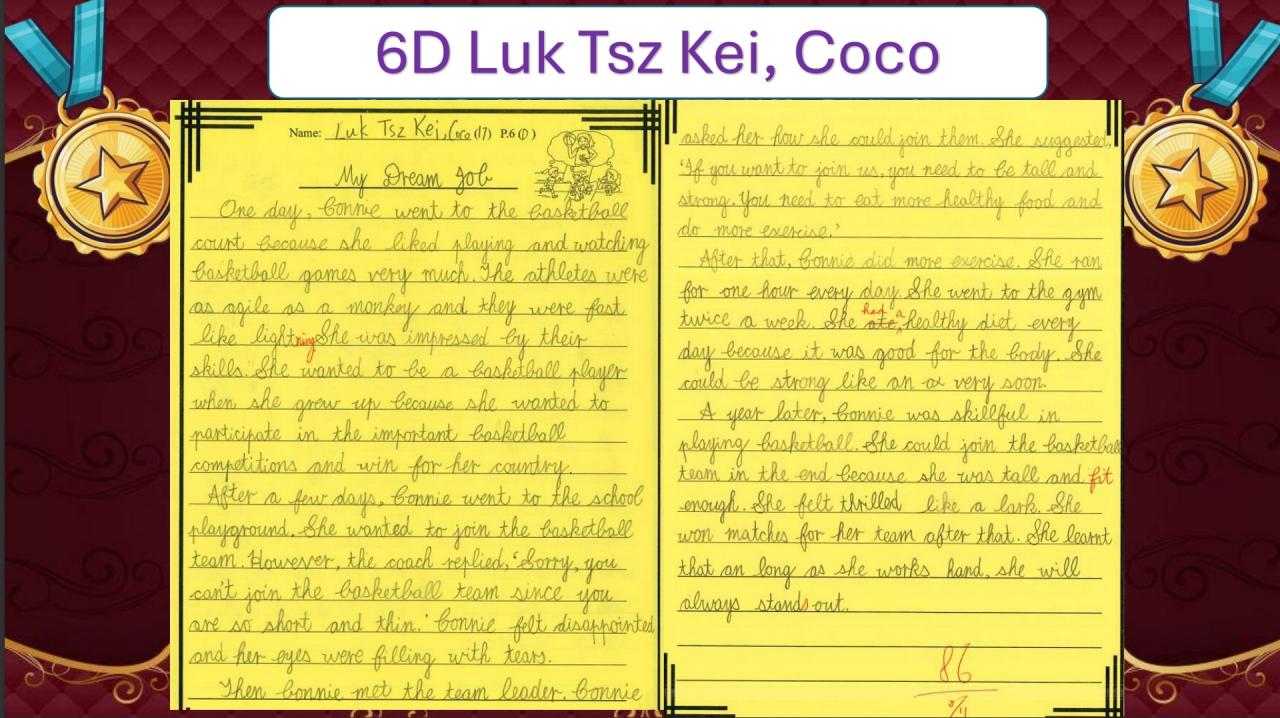 6D Luk Tsz Kei, Coco
Name: Luk Tsz Kei, Coco (17) P.6 (D)
My Dream Job
One day, Connie went to the basketball
court because she liked playing and watching
basketball games very much. The athletes were
as agile as a monkey and they were fast
like lightning She was impressed by their
skills. She wanted to be a basketball player
when she grew up because she wanted to
participate in the important basketball
competitions and win for her country.
After a few days, Connie went to the school
playground. She wanted to join the basketball
team. However, the coach replied, 'Sorry, you
can't join the basketball team since you
are so short and thin.' Connie felt disappointed
and her eyes were filling with tears.
Then Connie met the team leader. Connie
asked her how she could join them. She suggested,
'If you want to join us, you need to be tall and
strong. You need to eat more healthy food and
do more exercise.'
After that, Connie did more exercise. She ran
for one hour every day. She went to the gym
had a
twice a week. She ate healthy diet every
day because it was good for the body. She
could be strong like an ox very soon.
A year later, Connie was skillful in
playing basketball. She could join the basketball
team in the end because she was tall and fit
enough. She felt thrilled like a lark. She
won matches for her team after that. She learnt
that an long as she works hand, she will
always stands out.
86